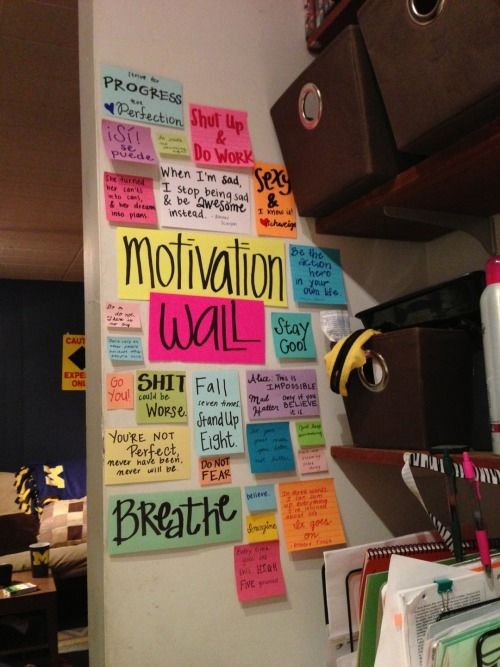 Strive for
PROGRESS
not
Perfection
¡Sí!
se
puede
Shut Up
&
DO WORK
She turned
her can'ts
into cans,
& her dreams
into plans.
When I'm sad,
I stop being sad
& be awesome
instead. - Barney
Stinson
Sexy
&
I know it!
Motivation
Be the
action
hero
in your
own life.
WALL
Do or
do not.
There is
no try.
Stay
Cool
Go
You!
SHIT
could be
WORSE.
Fall
seven times,
Stand Up
Eight.
Alice: This is
IMPOSSIBLE
Mad
Hatter
Only if you
BELIEVE
it is.
YOU'RE NOT
Perfect,
never have been,
never will be.
DO NOT
FEAR
Breathe
believe.
Imagine
In three words
I can sum
up everything
I've learned
about life
It goes
on
Every time
you
this, HIGH
FIVE yourself
CAUT
EXPE
ONLY
M